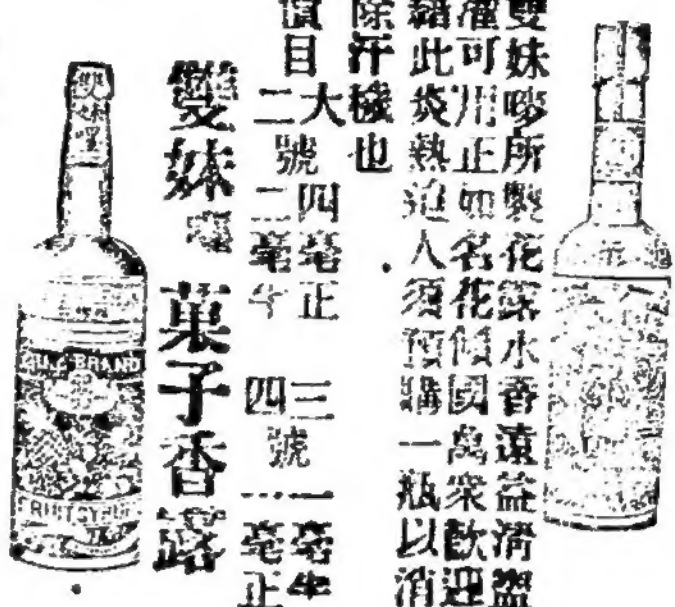 雙妹嘜所製花露水香遠益清盥
濯可用正如名花傾國萬衆歡迎
此炎熱迫人須預購一瓶以消
除汗穢也
價目
大 號 四毫正 三 號 一毫半
二 號 二毫半 四 號 一毫正
雙妹嘜菓子香露
雙妹嘜
BRAND
FRUIT SYRUP